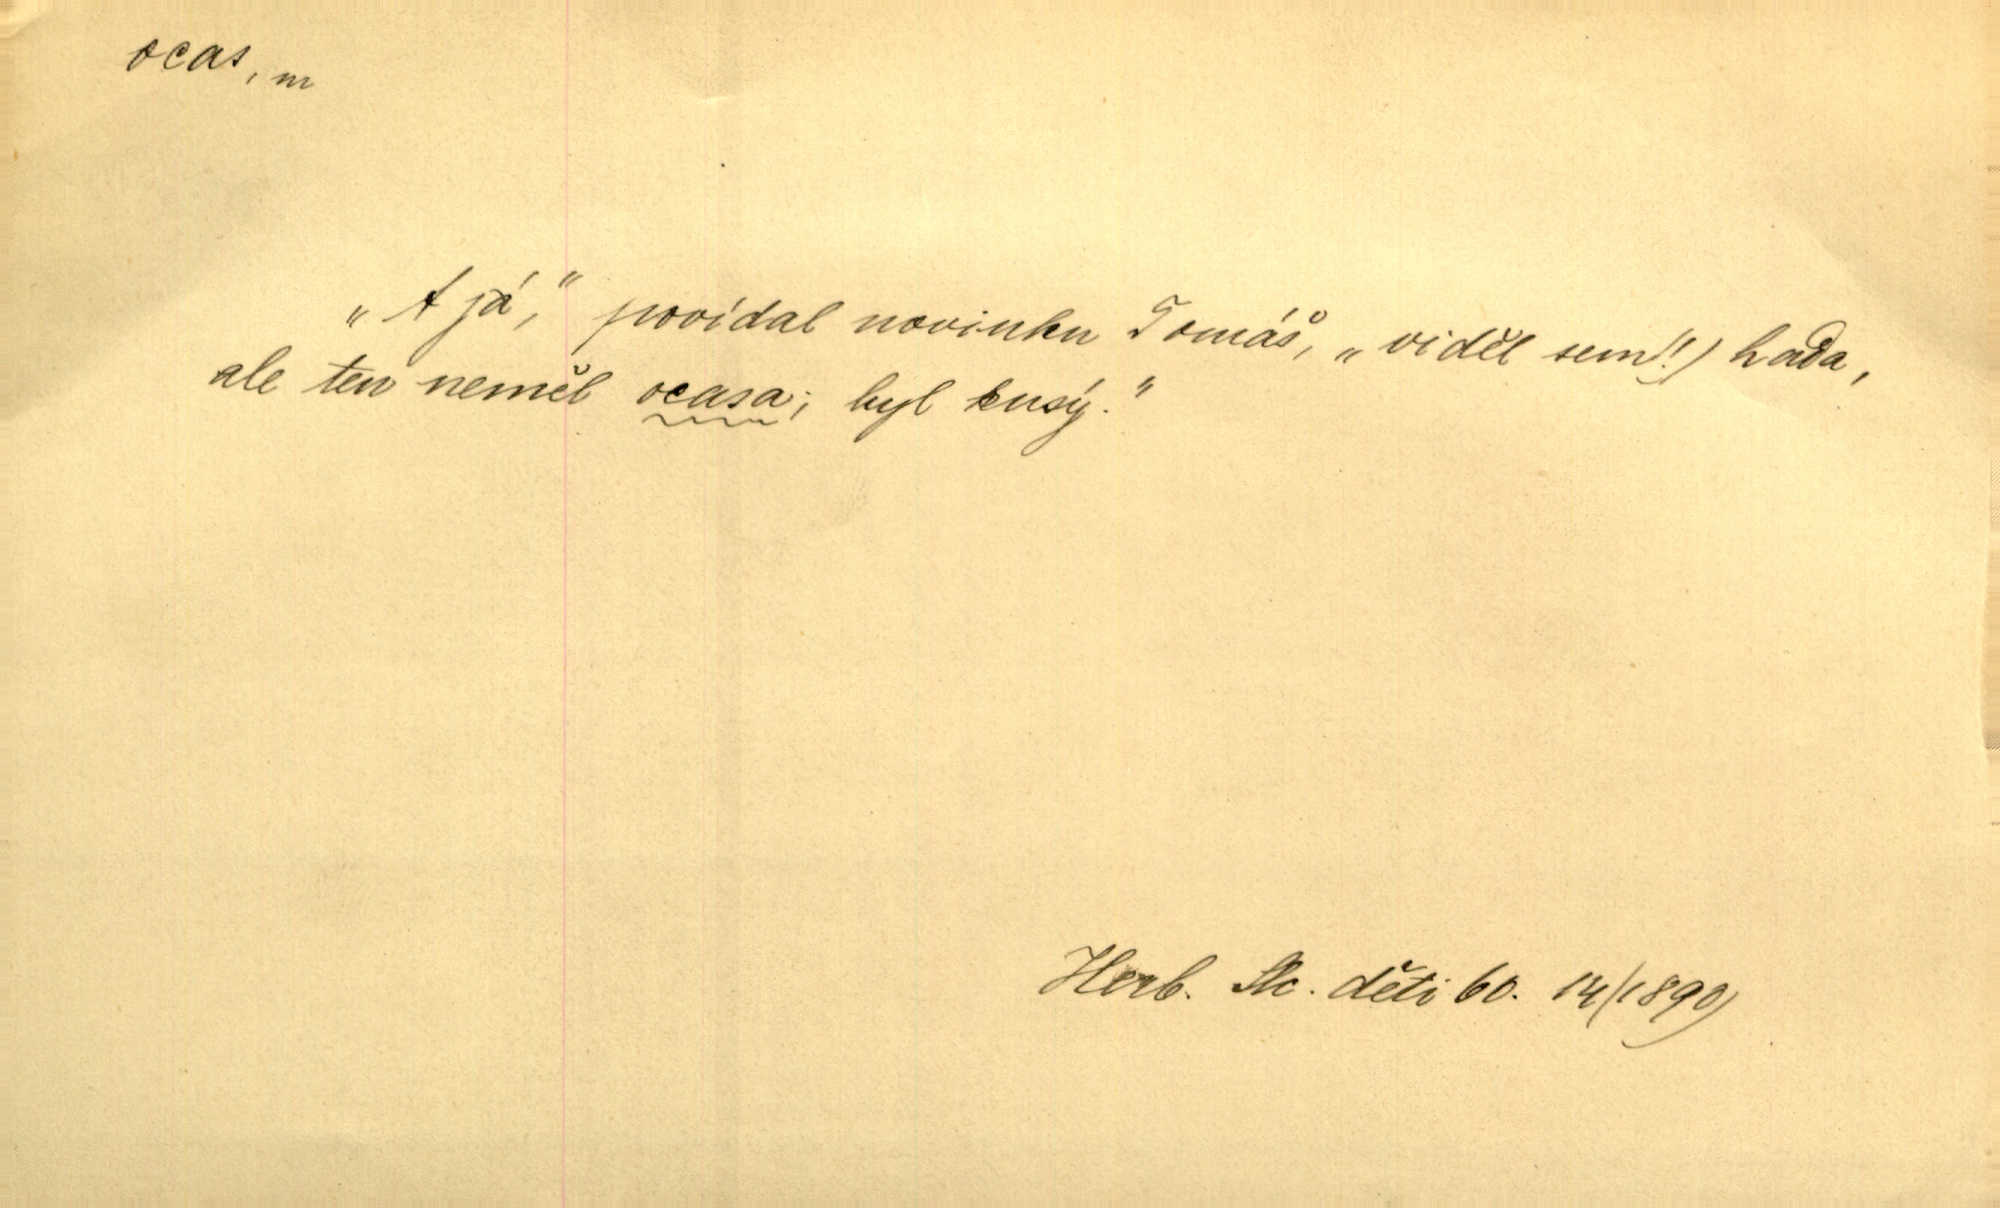 ocas, m
„A já,“ povídal novinku Tomáš, „viděl sem(!) hada,
ale ten neměl ocasa; byl kusý.“
Herb. Slc. děti 60. 14 (1890)